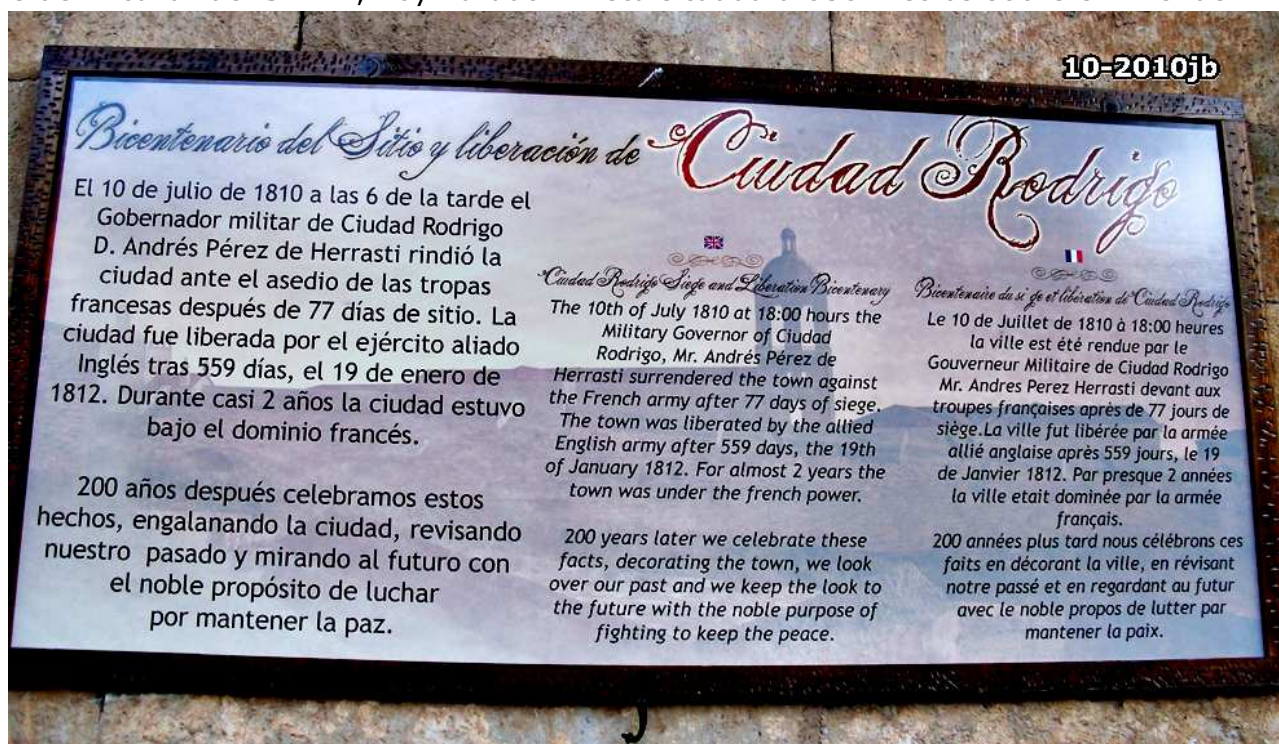 10-2010jb
Bicentenario del Sitio y liberación de Ciudad Rodrigo
El 10 de julio de 1810 a las 6 de la tarde el
Gobernador militar de Ciudad Rodrigo
D. Andrés Pérez de Herrasti rindió la
ciudad ante el asedio de las tropas
francesas después de 77 días de sitio. La
ciudad fue liberada por el ejército aliado
Inglés tras 559 días, el 19 de enero de
1812. Durante casi 2 años la ciudad estuvo
bajo el dominio francés.
200 años después celebramos estos
hechos, engalanando la ciudad, revisando
nuestro pasado y mirando al futuro con
el noble propósito de luchar
por mantener la paz.
Ciudad Rodrigo Siege and Liberation Bicentenary
The 10th of July 1810 at 18:00 hours the
Military Governor of Ciudad
Rodrigo, Mr. Andrés Pérez de
Herrasti surrendered the town against
the French army after 77 days of siege.
The town was liberated by the allied
English army after 559 days, the 19th
of January 1812. For almost 2 years the
town was under the french power.
200 years later we celebrate these
facts, decorating the town, we look
over our past and we keep the look to
the future with the noble purpose of
fighting to keep the peace.
Bicentenaire du si ge et libération de Ciudad Rodrigo
Le 10 de Juillet de 1810 à 18:00 heures
la ville est été rendue par le
Gouverneur Militaire de Ciudad Rodrigo
Mr. Andres Perez Herrasti devant aux
troupes françaises après de 77 jours de
siège.La ville fut libérée par la armée
allié anglaise après 559 jours, le 19
de Janvier 1812. Par presque 2 années
la ville etait dominée par la armée
français.
200 années plus tard nous célébrons ces
faits en décorant la ville, en révisant
notre passé et en regardant au futur
avec le noble propos de lutter par
mantener la paix.